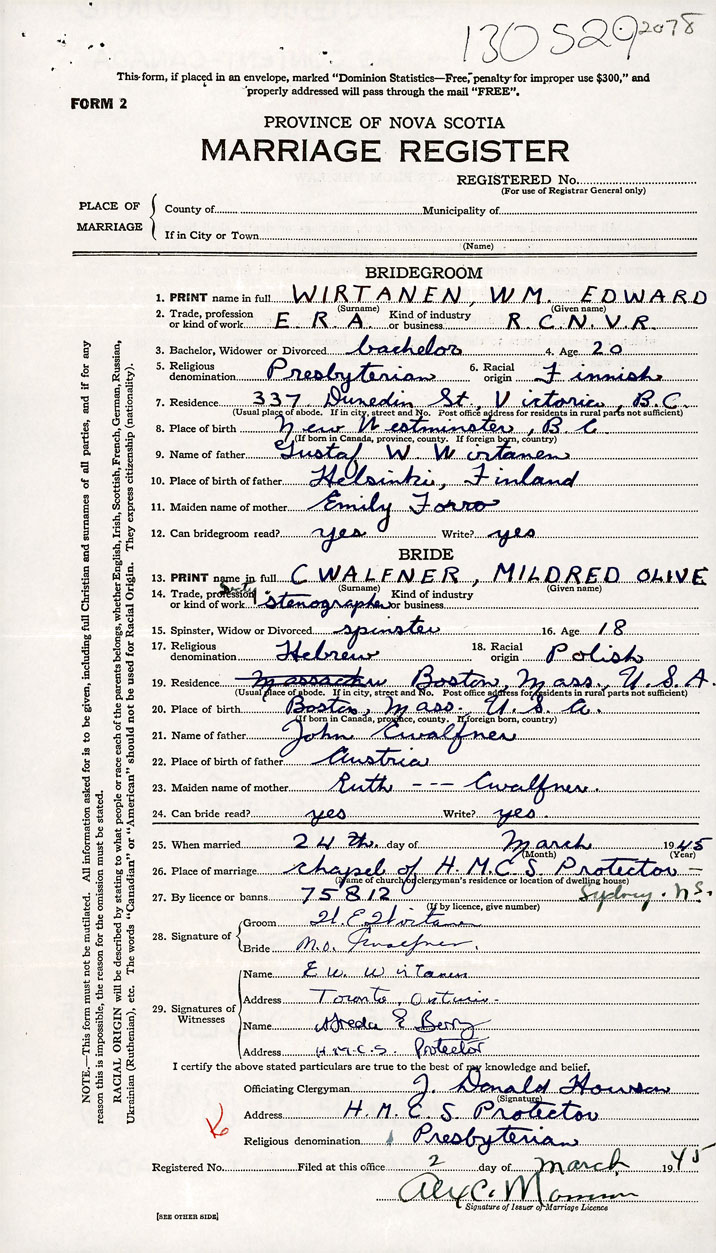 130529 2078
This form, if placed in an envelope, marked "Dominion Statistics—Free, penalty for improper use $300," and
properly addressed will pass through the mail "FREE".
FORM 2
PROVINCE OF NOVA SCOTIA
MARRIAGE REGISTER
REGISTERED No.
(For use of Registrar General only)
PLACE OF MARRIAGE
County of Municipality of
If in City or Town
(Name)
BRIDEGROOM
1. PRINT name in full WIRTANEN, WM. EDWARD
(Surname) (Given name)
2. Trade, profession or kind of work E. R. A. Kind of industry or business R. C. N. V. R.
3. Bachelor, Widower or Divorced bachelor 4. Age 20
5. Religious denomination Presbyterian 6. Racial origin Finnish
7. Residence 337 Dunedin St, Victoria, B.C.
(Usual place of abode. If in city, street and No. Post office address for residents in rural parts not sufficient)
8. Place of birth New Westminster, B.C.
(If born in Canada, province, county. If foreign born, country)
9. Name of father Gustaf W. Wirtanen
10. Place of birth of father Helsinki, Finland
11. Maiden name of mother Emily Forro
12. Can bridegroom read? yes Write? yes
BRIDE
13. PRINT name in full CWALFNER, MILDRED OLIVE
(Surname) (Given name)
14. Trade, profession or kind of work stenographer Kind of industry or business
15. Spinster, Widow or Divorced spinster 16. Age 18
17. Religious denomination Hebrew 18. Racial origin Polish
19. Residence Boston, Mass., U.S.A.
(Usual place of abode. If in city, street and No. Post office address for residents in rural parts not sufficient)
20. Place of birth Boston, Mass. U.S.A.
(If born in Canada, province, county. If foreign born, country)
21. Name of father John Cwalfner
22. Place of birth of father Austria
23. Maiden name of mother Ruth --- Cwalfner.
24. Can bride read? yes Write? yes.
25. When married 24th. day of March 1945
(Month) (Year)
26. Place of marriage chapel of H.M.C.S Protector -
(Name of church or clergyman's residence or location of dwelling house)
27. By licence or banns 75812 Sydney. N.S.
(If by licence, give number)
28. Signature of
Groom W. E. Wirtanen
Bride M.O. Cwalfner.
29. Signatures of Witnesses
Name E W. Wirtanen
Address Toronto, Ontario -
Name Alfreda E Berry
Address H.M.C.S. Protector
I certify the above stated particulars are true to the best of my knowledge and belief.
Officiating Clergyman J. Donald Howson
(Signature)
Address H. M. C. S Protector
Religious denomination Presbyterian
Registered No. Filed at this office 2 day of March 1945
Signature of Issuer of Marriage Licence
[SEE OTHER SIDE]
NOTE.—This form must not be mutilated. All information asked for is to be given, including full Christian and surnames of all parties, and if for any
reason this is impossible, the reason for the omission must be stated.
RACIAL ORIGIN will be described by stating to what people or race each of the parents belongs, whether English, Irish, Scottish, French, German, Russian,
Ukrainian (Ruthenian), etc. The words "Canadian" or "American" should not be used for Racial Origin. They express citizenship (nationality).